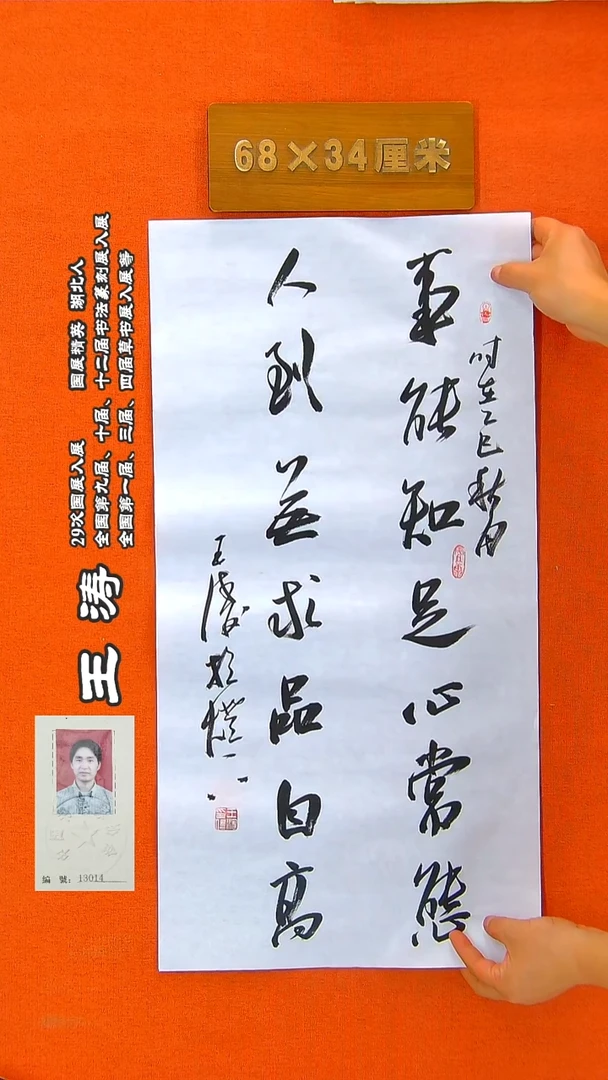 68×34厘米
时在乙巳秋月
事能知足心常態
人到無求品自高
王涛
29次国展入展 国展精英 湖北人
全国第九届、十届、十二届书法篆刻展入展
全国第一届、三届、四届草书展入展等
王涛
編號：13014